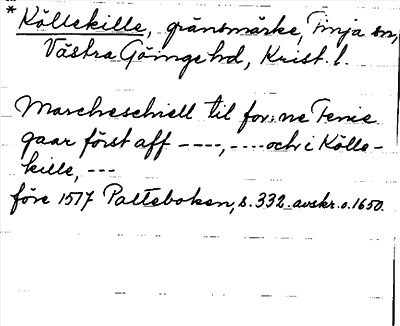 * Köllekille, gränsmärke, Finja sn,
Västra Göinge hd, Krist. l.
Marckeschiell til for:ne Fenie
gaar först aff ----, ---- och i Kölle-
kille, ---
före 1517 Palteboken, s. 332. avskr. o. 1650.